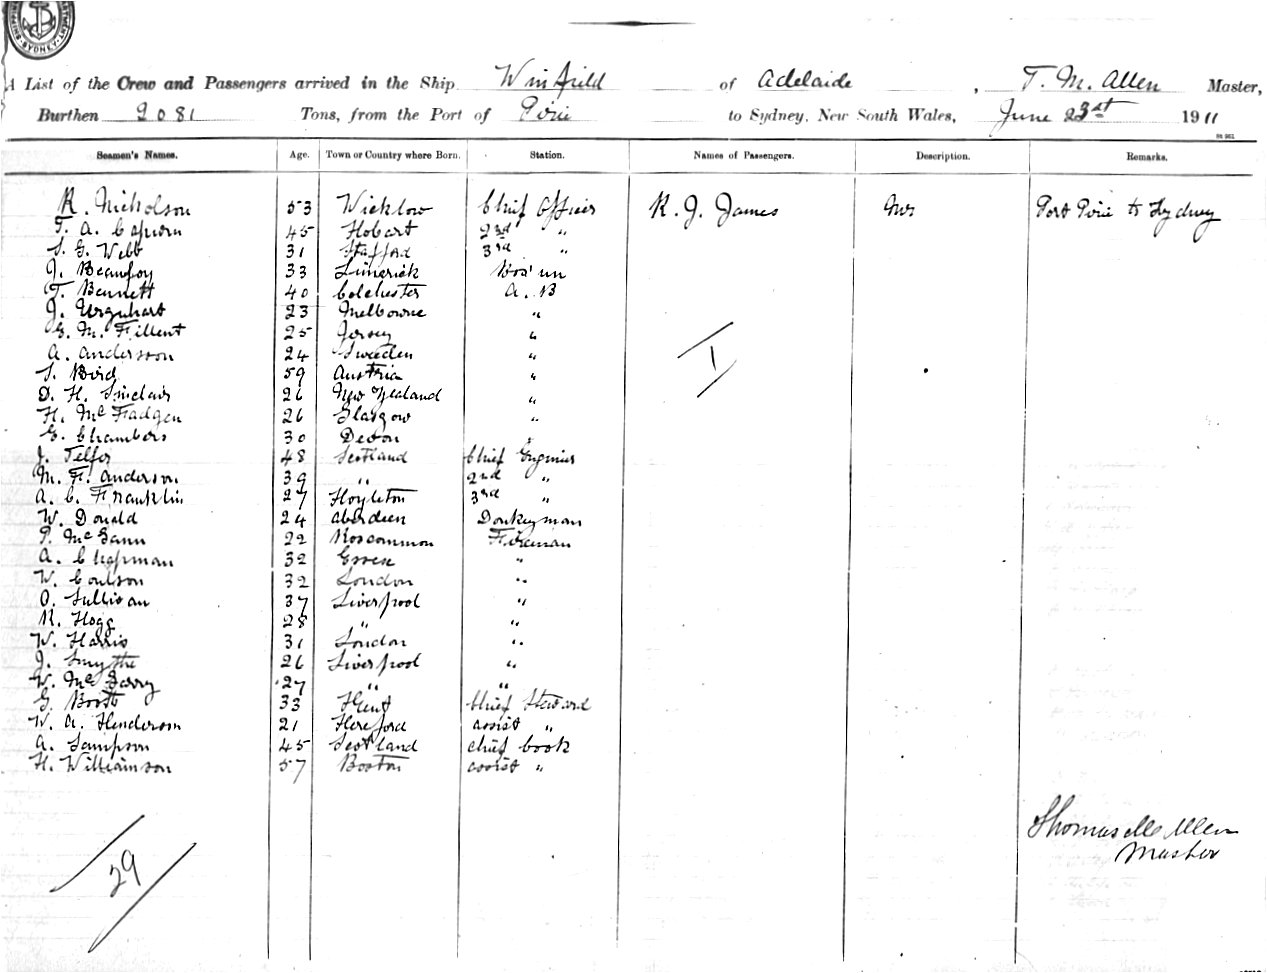 SHIPPING DEPARTMENT SYDNEY
A List of the Crew and Passengers arrived in the Ship Winfield of Adelaide, T. M. Allen Master,
Burthen 2081 Tons, from the Port of Pirie to Sydney, New South Wales, June 23st 1911
Seamen's Names. Age. Town or Country where Born. Station. Names of Passengers. Description. Remarks.
R. Nicholson 53 Wicklow Chief Officer R. J. James Mr Port Pirie to Sydney
T. A. 45 Hobart 2nd "
S. G. Webb 31 Stafford 3rd "
J. Beaufoy 33 Limerick Bos'un
T. Bennett 40 Colchester A. B
J. Urquhart 23 Melbourne "
G. M. Fillent 25 Jersey "
A. Andersson 24 Sweden "
S. Bird 59 Austria "
D. H. Sinclair 26 New Zealand "
H. McFadgen 26 Glasgow "
G. Chambers 30 Devon "
J. Telfer 48 Scotland Chief Engineer
M. F. Anderson 39 " 2nd "
A. C. Franklin 27 Hoyleton 3rd "
W. Donald 24 Aberdeen Donkeyman
P. McGann 22 Roscommon Fireman
A. Chapman 32 Essex "
W. Coulson 32 London "
O. Sullivan 37 Liverpool "
R. Hogg 28 " "
W. Harris 31 London "
J. Smythe 26 Liverpool "
W. McGarry 27 " "
G. Booth 33 Kent Chief Steward
W. A. Henderson 21 Hereford assist "
A. Sampson 45 Scotland chief Cook
H. Williamson 57 Boston assist "
1
29
Thomas M Allen
Master